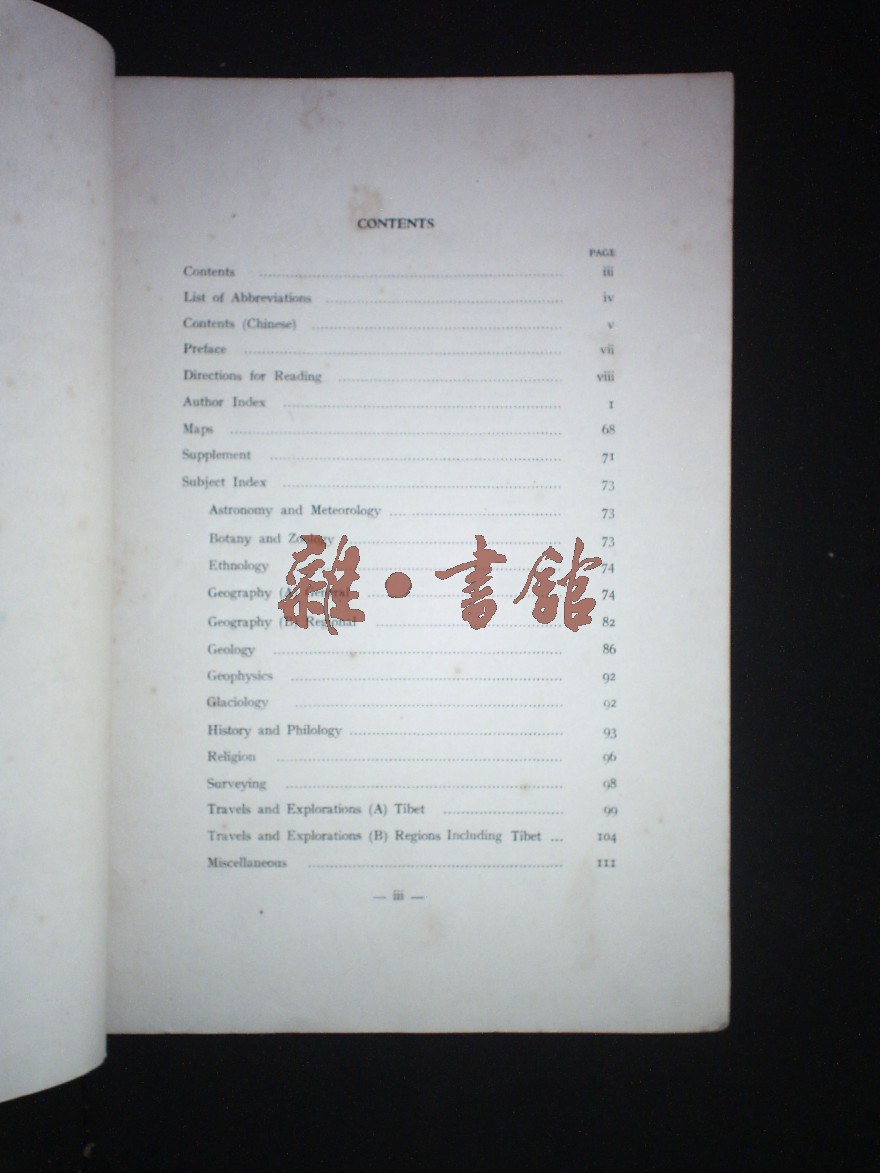 CONTENTS
PAGE
Contents ........ iii
List of Abbreviations ........ iv
Contents (Chinese) ........ v
Preface ........ vii
Directions for Reading ........ viii
Author Index ........ 1
Maps ........ 68
Supplement ........ 71
Subject Index ........ 73
Astronomy and Meteorology ........ 73
Botany and Zoology ........ 73
Ethnology ........ 74
Geography (A) General ........ 74
Geography (B) Regional ........ 82
Geology ........ 86
Geophysics ........ 92
Glaciology ........ 92
History and Philology ........ 93
Religion ........ 96
Surveying ........ 98
Travels and Explorations (A) Tibet ........ 99
Travels and Explorations (B) Regions Including Tibet ... 104
Miscellaneous ........ 111
— iii —
雜·書館